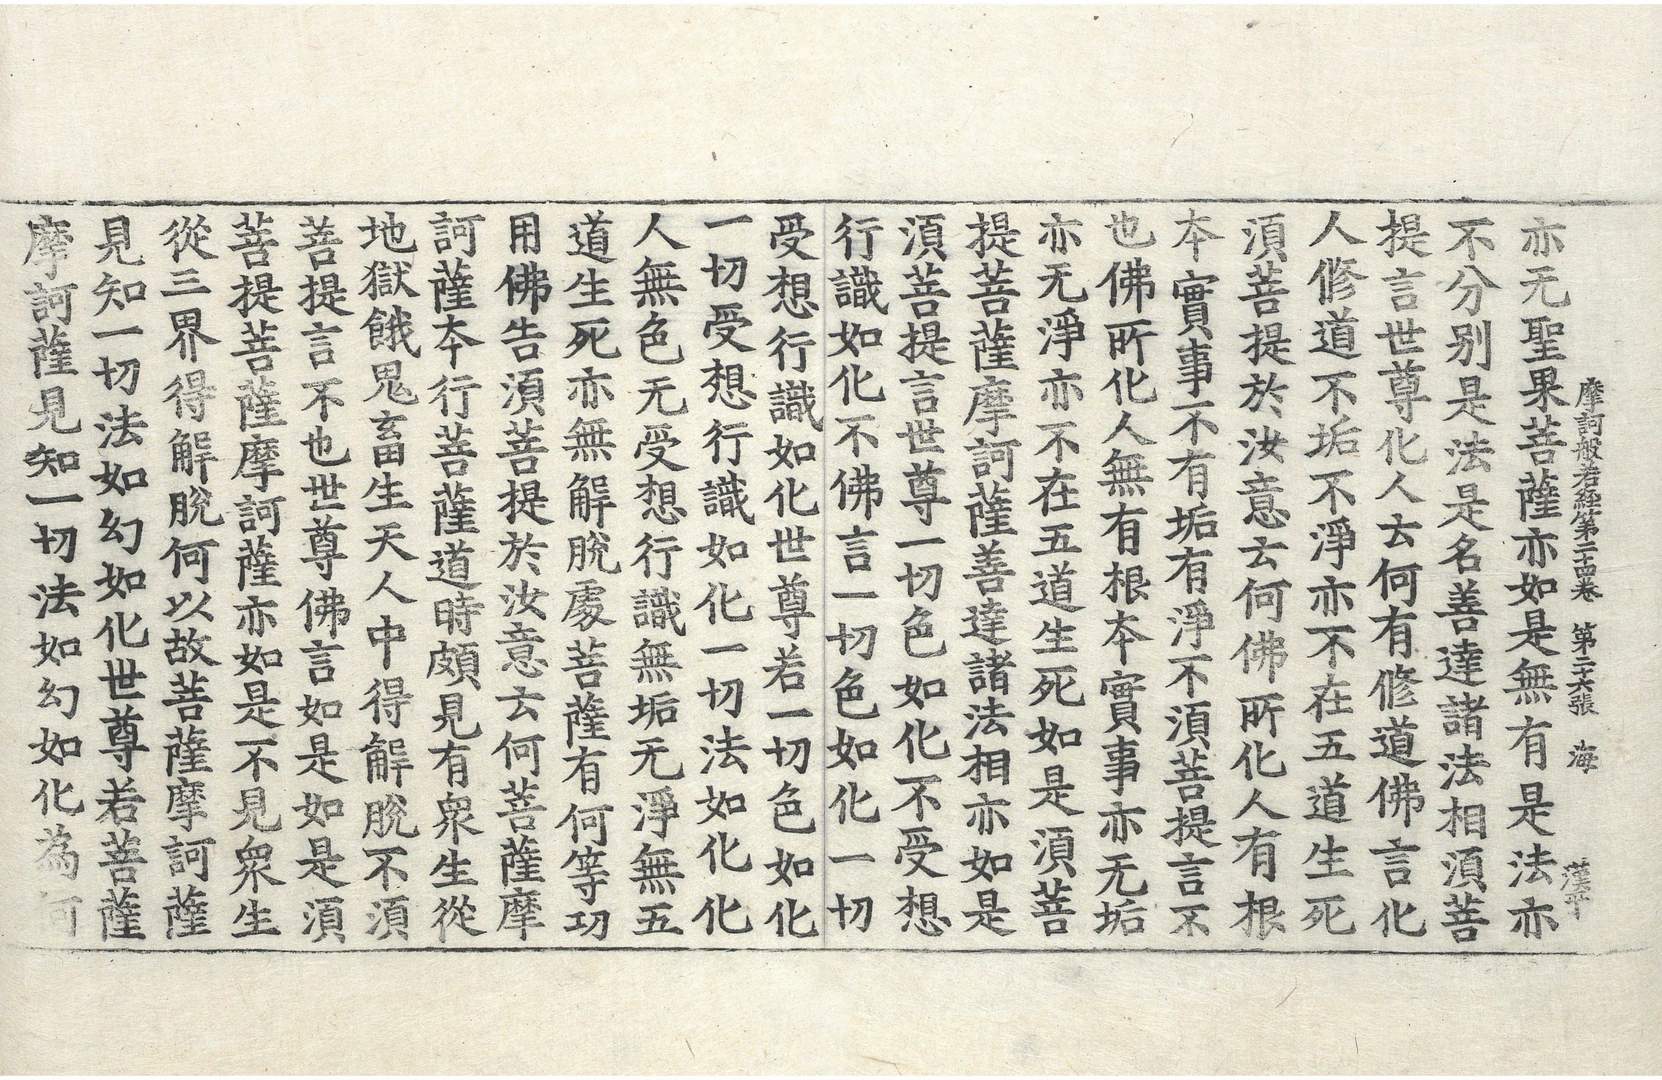 摩訶般若經第二十四卷 第二十六張 海 漢平
亦无聖果菩薩亦如是無有是法亦
不分别是法是名善達諸法相須菩
提言世尊化人云何有修道佛言化
人修道不垢不淨亦不在五道生死
須菩提於汝意云何佛所化人有根
本實事不有垢有淨不須菩提言不
也佛所化人無有根本實事亦无垢
亦无淨亦不在五道生死如是須菩
提菩薩摩訶薩善達諸法相亦如是
須菩提言世尊一切色如化不受想
行識如化不佛言一切色如化一切
受想行識如化世尊若一切色如化
一切受想行識如化一切法如化化
人無色无受想行識無垢无淨無五
道生死亦無解脫處菩薩有何等功
用佛告須菩提於汝意云何菩薩摩
訶薩本行菩薩道時頗見有衆生從
地獄餓鬼畜生天人中得解脫不須
菩提言不也世尊佛言如是如是須
菩提菩薩摩訶薩亦如是不見衆生
從三界得解脫何以故菩薩摩訶薩
見知一切法如幻如化世尊若菩薩
摩訶薩見知一切法如幻如化為何